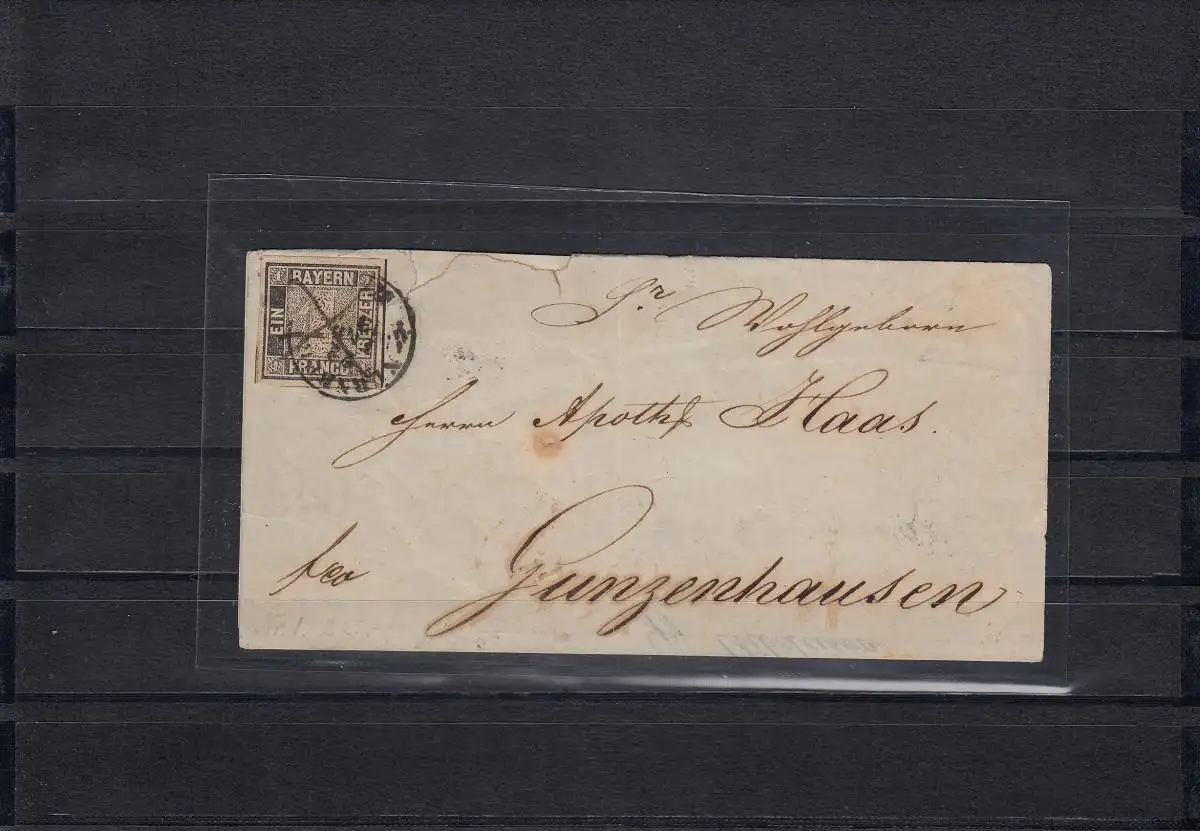 BAYERN
EIN
KREUZER
FRANCO
1
1
Sr Wohlgeborn
Herrn Apoth Haas.
fco
Gunzenhausen